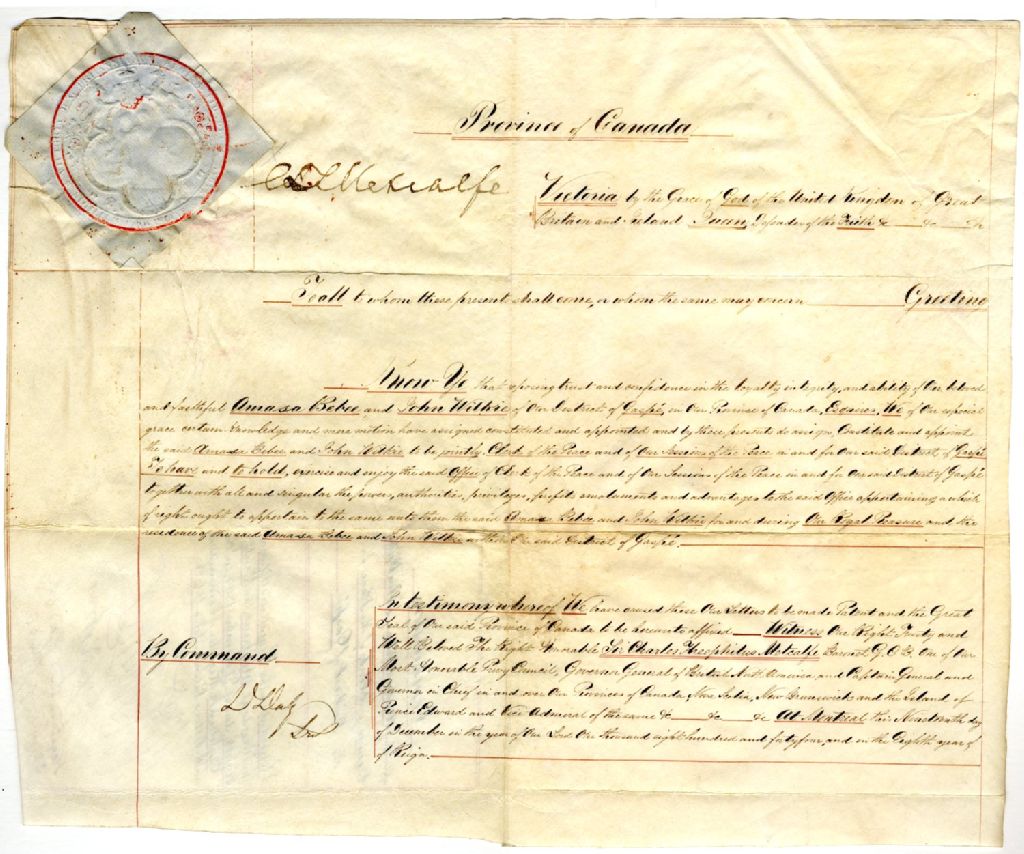 Province of Canada
C T Metcalfe
Victoria by the Grace of God of the United Kingdom of Great
Britain and Ireland Queen, Defender of the Faith &c &c &c
To all to whom these present shall come, or whom the same may concern Greeting
Know Ye that reposing trust and confidence in the loyalty integrity, and ability of Our beloved
and faithful Amasa Bebee and John Wilkie of Our District of Gaspé, in Our Province of Canada, Esquires, We of Our especial
grace certain knowledge and mere motion have assigned constituted and appointed and by these present do assign, Constitute and appoint
the said Amasa Bebee and John Wilkie to be jointly Clerk of the Peace and of Our Sessions of the Peace in and for Our said District of Gaspé
To have and to hold, exercise and enjoy the said Office of Clerk of the Peace and of Our Sessions of the Peace in and for Our said District of Gaspé
together with all and singular the powers, authorities, privileges, profits emoluments and advantages to the said Office appertaining or which
of right ought to appertain to the same unto them the said Amasa Bebee and John Wilkie for and during Our Royal Pleasure and the
residence of the said Amasa Bebee and John Wilkie within Our said District of Gaspé.
In testimony whereof We have caused these Our Letters to be made Patent and the Great
Seal of Our said Province of Canada to be hereunto affixed. Witness Our Right Trusty and
Well Beloved The Right Honorable Sir Charles Theophilus Metcalfe Baronet, G.C.B. One of Our
Most Honorable Privy Council, Governor General of British North America, and Captain General and
Governor in Chief in and over Our Provinces of Canada, Nova Scotia, New Brunswick and the Island of
Prince Edward and Vice Admiral of the same &c &c &c At Montreal this Nineteenth day
of December in the year of Our Lord One thousand eight hundred and forty four, and in the Eighth year of
of Reign.
By Command
D Daly